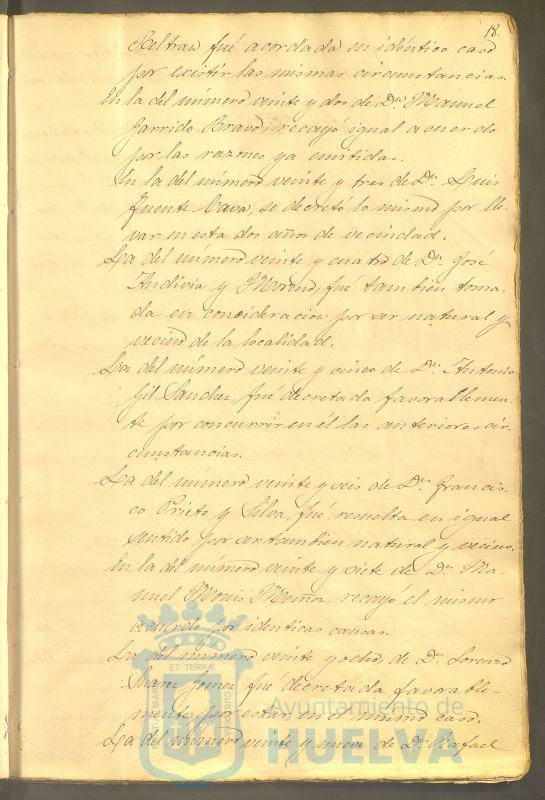 18.
Beltran fué acordada en idéntico caso
por existir las mismas circunstancias.
En la del número veinte y dos de Dn. Manuel
Garrido Bravo, recayó igual acuerdo
por las razones ya emitidas.
En la del número veinte y tres de Dn. Luis
Fuente Cava, se decretó lo mismo por lle
var en esta dos años de vecindad.
La del número veinte y cuatro de Dn. José
Andivia y Moreno, fué tambien toma-
da en consideracion por ser natural y
vecino de la localidad.
La del número veinte y cinco de Dn. Antonio
Gil Sanchez, fué decretada favorablemen-
te por concurrir en él las anteriores cir-
cunstancias.
La del número veinte y seis de Dn. Francis-
co Prieto y Silva, fué resuelta en igual
sentido por ser tambien natural y vecino.
En la del número veinte y siete de Dn. Ma-
nuel Monis Muñoz, recayo el mismo
acuerdo por identicas causas.
La del número veinte y ocho, de Dn. Lorenzo
Suarez Gomez fué decretada favorable-
mente por estar en el mismo caso.
La del número veinte y nueve de Dn. Rafael
ET TERRÆ
CUSTODIA
Ayuntamiento de
HUELVA